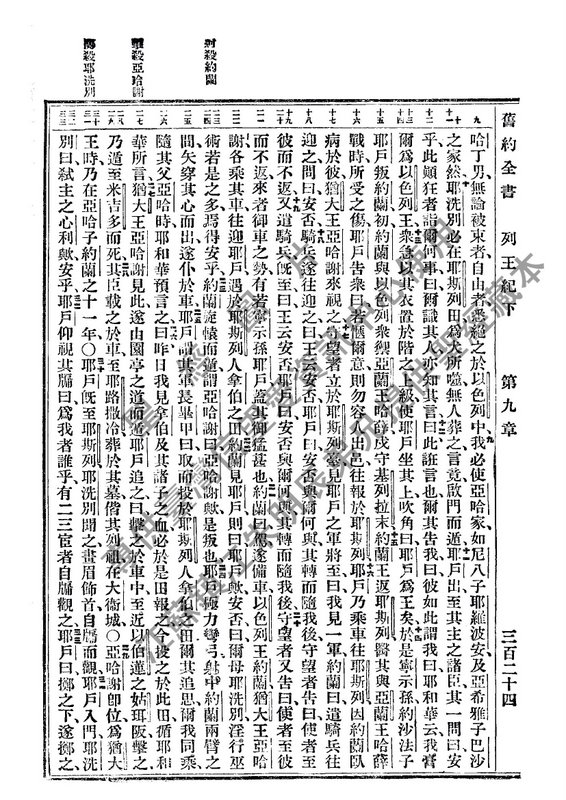 舊約全書 列王紀下 第九章 三百二十四
哈丁男無論被束者自由者悉絕之於以色列中我必使亞哈家如尼八子耶羅波安及亞希雅子巴沙
之家然耶洗別必在耶斯列田為犬所噬無人葬之言竟啟門而遁耶戶出至其主之諸臣其一問曰安
乎此顛狂者詣爾何事曰爾識其人亦知其言曰此誑言也爾其告我曰彼如此謂我曰耶和華云我膏
爾為以色列王眾急以其衣置於階之上級使耶戶坐其上吹角曰耶戶為王矣於是寧示孫約沙法子
耶戶叛約蘭初約蘭與以色列眾禦亞蘭王哈薛戍守基列拉末約蘭王返耶斯列醫其與亞蘭王哈薛
戰時所受之傷耶戶告眾曰若愜爾意則勿容人出邑往報於耶斯列耶戶乃乘車往耶斯列因約蘭臥
病於彼猶大王亞哈謝來視之守望者立於耶斯列臺見耶戶之軍將至曰我見一軍約蘭曰遣騎兵往
迎之問曰安否騎兵遂往迎之曰王云安否耶戶曰安否與爾何與其轉而隨我後守望者告曰使者至
彼而不返又遣騎兵既至曰王云安否耶戶曰安否與爾何與其轉而隨我後守望者又告曰使者至彼
而不返來者御車之勢有若寧示孫耶戶蓋其御猛甚也約蘭曰備車遂備車以色列王約蘭猶大王亞哈
謝各乘其車往迎耶戶遇於耶斯列人拿伯之田約蘭見耶戶則曰耶戶歟安否曰爾母耶洗別淫行巫
術若是之多焉得安乎約蘭旋轅而遁謂亞哈謝曰亞哈謝歟是叛也耶戶極力彎弓射中約蘭兩臂之
間矢穿其心而出遂仆於車耶戶謂其軍長畢甲曰取而投於耶斯列人拿伯之田爾其追思爾我同乘
隨其父亞哈時耶和華預言之曰昨日我見拿伯及其諸子之血必於是田報之今投之於此田循耶和
華所言猶大王亞哈謝見此遂由園亭之道而遁耶戶追之曰擊之於車中至近以伯蓮之姑珥阪擊之
乃遁至米吉多而死其臣載之於車至耶路撒冷葬於其墓偕其列祖在大衛城○亞哈謝即位為猶大
王時乃在亞哈子約蘭之十一年○耶戶既至耶斯列耶洗別聞之畫眉飾首自牖而觀耶戶入門耶洗
別曰弒主之心利歟安乎耶戶仰視其牖曰為我者誰乎有二三宦者自牖觀之耶戶曰擲之下遂擲之
射殺約蘭
擊殺亞哈謝
擲殺耶洗別